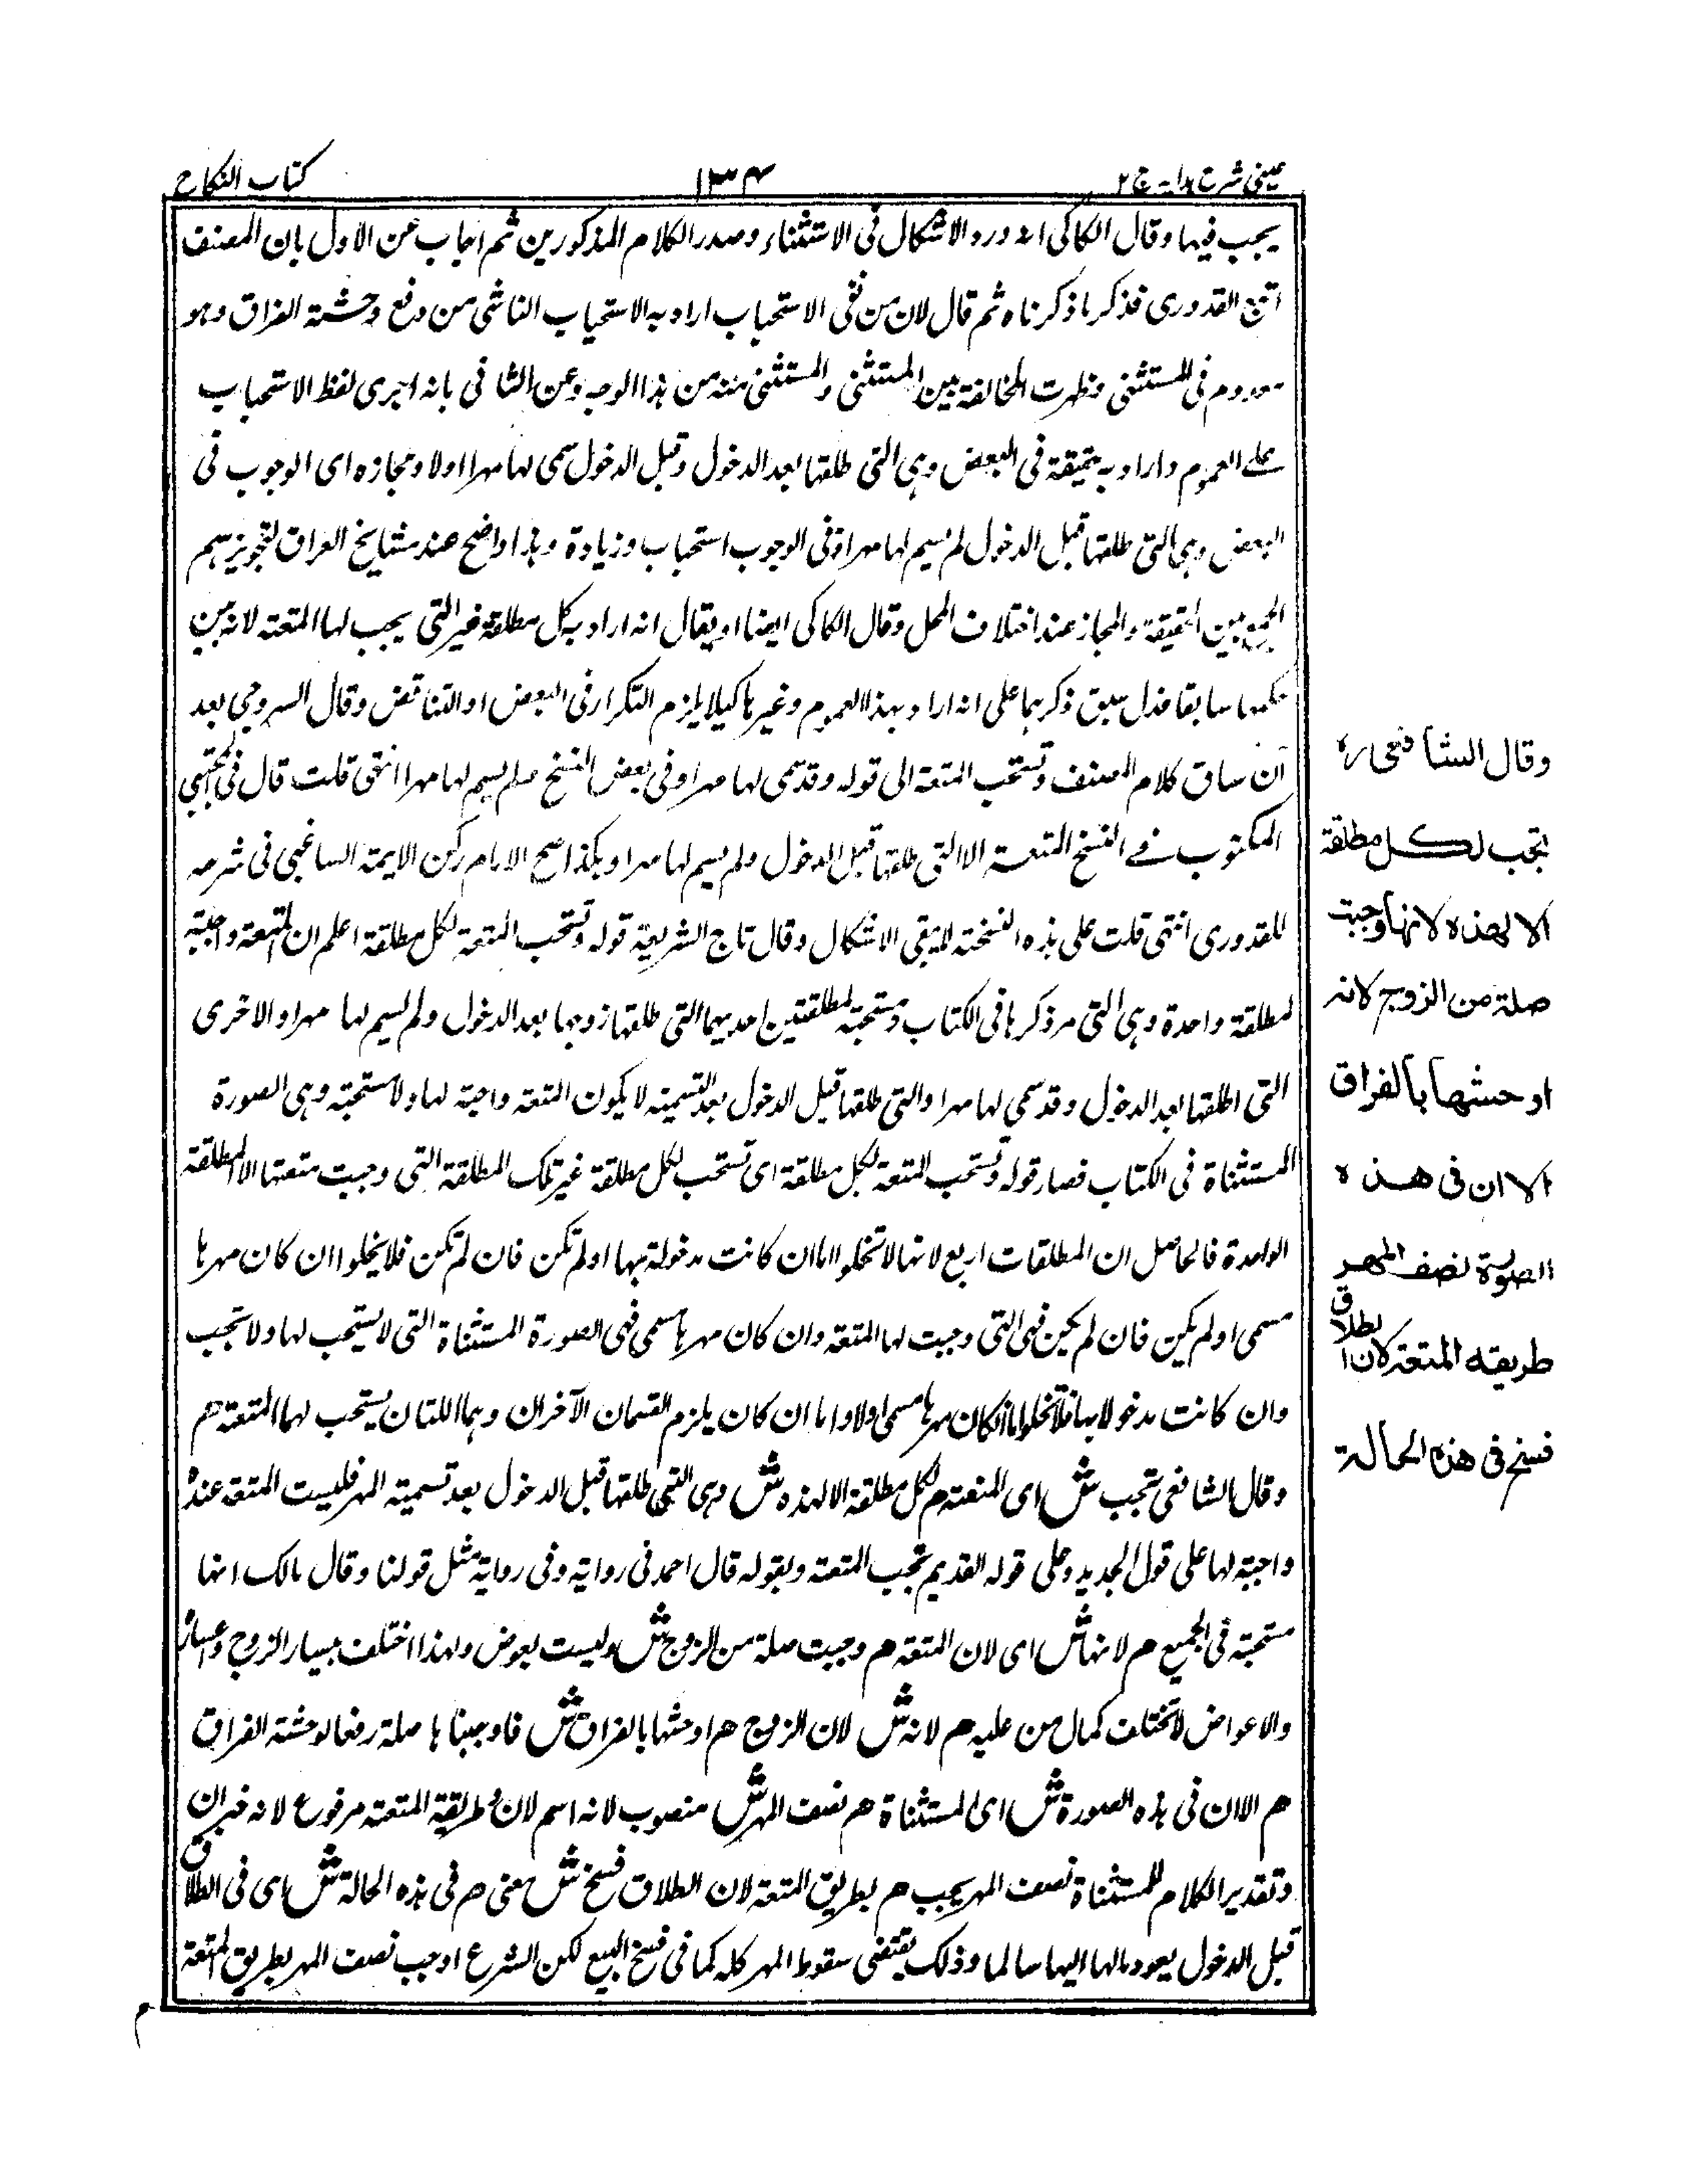 عینی شرح هدایہ ج ۲
۱۳۴
کتاب النکاح
یجب فیہا وقال الکاکی انہ ورد الاشکال فی الاستثناء وصدر الکلام المذکورین ثم اجاب عن الاول بان المصنف
اتبع القدوری فذکر ما ذکرناہ ثم قال لان من نفی الاستحباب اراد بہ الاستحباب الناشی من دفع وحشۃ الفراق وہو
معدوم فی المستثنی فظہرت المخالفۃ بین المستثنی والمستثنی منہ من ہذا الوجہ وعن الثانی بانہ اجری لفظ الاستحباب
علی العموم واراد بہ حقیقۃ فی البعض وہی التی طلقہا بعد الدخول وقبل الدخول سمی لہا مہرا اولا ومجازہ ای الوجوب فی
البعض وہی التی طلقہا قبل الدخول لم یسم لہا مہرا وفی الوجوب استحباب وزیادۃ وہذا واضح عند مشایخ العراق لتجویزہم
الجمع بین الحقیقۃ والمجاز عند اختلاف المحل وقال الکاکی ایضا او یقال انہ اراد بہ کل مطلقۃ غیر التی یجب لہا المتعۃ لانہ بین
حکمہا سابقا فدل سبق ذکرہا علی انہ اراد بہذا العموم وغیرہا کیلا یلزم التکرار فی البعض او التناقض وقال السروجی بعد
ان ساق کلام المصنف وتستحب المتعۃ الی قولہ وقد سمی لہا مہرا وفی بعض النسخ ولم یسم لہا مہرا انتہی قلت قال فی المجتبی
المکتوب فی النسخ المتعۃ الا التی طلقہا قبل الدخول ولم یسم لہا مہرا وہکذا صح الامام رکن الایمۃ الساغجی فی شرحہ
للقدوری انتہی قلت علی ہذہ النسخۃ لا یبقی الاشکال وقال تاج الشریعۃ قولہ وتستحب المتعۃ لکل مطلقۃ اعلم ان المتعۃ واجبۃ
لمطلقۃ واحدۃ وہی التی مر ذکرہا فی الکتاب ومستحبۃ لمطلقتین احدیہما التی طلقہا زوجہا بعد الدخول ولم یسم لہا مہرا والاخری
التی اطلقہا بعد الدخول وقد سمی لہا مہرا والتی طلقہا قبل الدخول بعد التسمیۃ لا یکون المتعۃ واجبۃ لہا ولا مستحبۃ وہی الصورۃ
المستثناۃ فی الکتاب فصار قولہ وتستحب المتعۃ لکل مطلقۃ ای تستحب لکل مطلقۃ غیر تلک المطلقۃ التی وجبت متعتہا الا المطلقۃ
الواحدۃ فالحاصل ان المطلقات اربع لانہا لا تخلو اما ان کانت مدخولۃ بہا او لم تکن فان لم تکن فلا یخلوا ان کان مہرہا
مسمی او لم یکن فان لم یکن فہی التی وجبت لہا المتعۃ وان کان مہرہا مسمی فہی الصورۃ المستثناۃ التی لا یستحب لہا ولا تجب
وان کانت مدخولا بہا فلا تخلوا اما ان کان مہرہا مسمی اولا واما ان کان یلزم القسمان الآخران وہما اللتان یستحب لہما المتعۃ ہم
وقال الشافعی تجب ش ای المتعۃ م لکل مطلقۃ الا لہذہ ش وہی التی طلقہا قبل الدخول بعد تسمیۃ المہر فلیست المتعۃ عندہ
واجبۃ لہا علی قول الجدید وعلی قولہ القدیم تجب المتعۃ وبقولہ قال احمد فی روایۃ وفی روایۃ مثل قولنا وقال مالک انہا
مستحبۃ فی الجمیع م لانہا ش ای لان المتعۃ م وجبت صلۃ من الزوج ش ولیست بعوض ولہذا اختلف بیسار الزوج واعسارہ
والاعواض لا تختلف کمال من علیہ م لانہ ش لان الزوج م اوحشہا بالفراق ش فاوجبنا ہا صلۃ رفعا لوحشۃ الفراق
م الا ان فی ہذہ الصورۃ ش ای المستثناۃ م نصف المہر ش منصوب لانہ اسم لان و طریقۃ المتعۃ مرفوع لانہ خبر ان
وتقدیر الکلام للمستثناۃ نصف المہر یجب م بطریق المتعۃ لان الطلاق فسخ ش معنی م فی ہذہ الحالۃ ش ای فی الطلاق
قبل الدخول یعود مالہا الیہا سالما وذلک یقتضی سقوط المہر کلہ کما فی فسخ البیع لکن الشرع اوجب نصف المہر بطریق المتعۃ
م
وقال الشافعی رہ
تجب لکل مطلقة
الا لهذه لانها وجبت
صلة من الزوج لانه
اوحشها بالفراق
الا ان فی هذه
الصورة نصف المهر
طریقه المتعة لان الطلاق
فسخ فی هذه الحالة